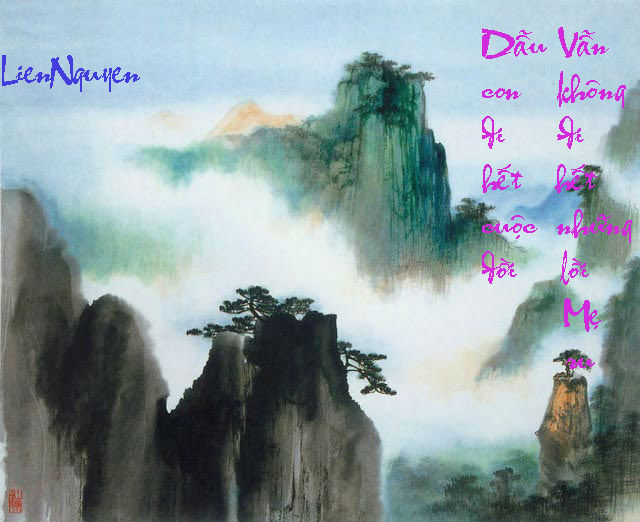 LienNguyen
Dẫu
con
đi
hết
cuộc
đời
Vẫn
không
đi
hết
những
lời
Mẹ
ru